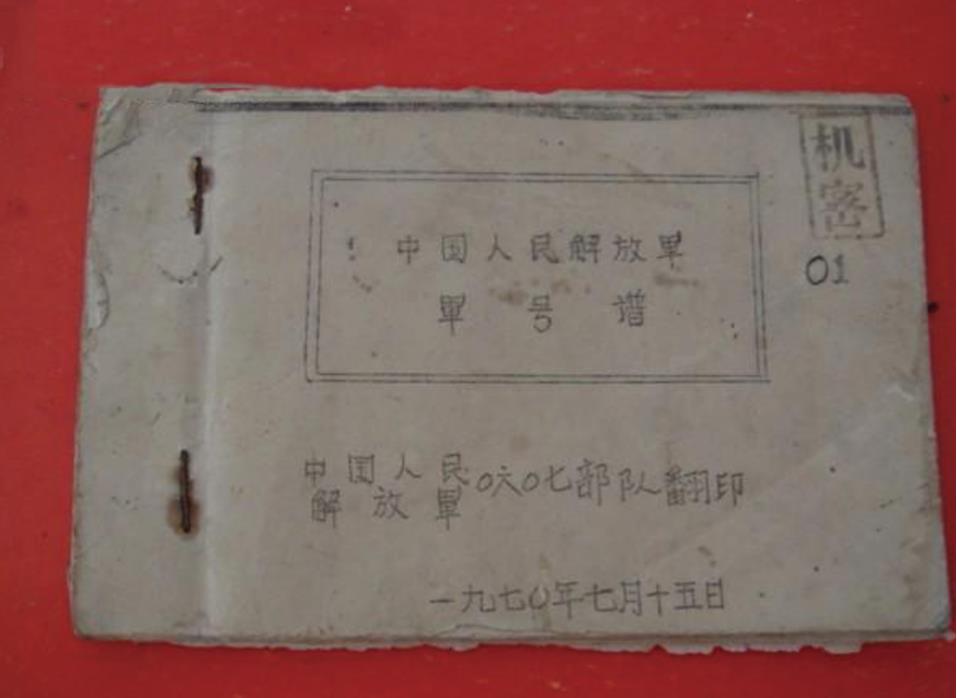 机密
01
中国人民解放军
军号谱
中国人民
解放军
〇六〇七部队翻印
一九七〇年七月十五日